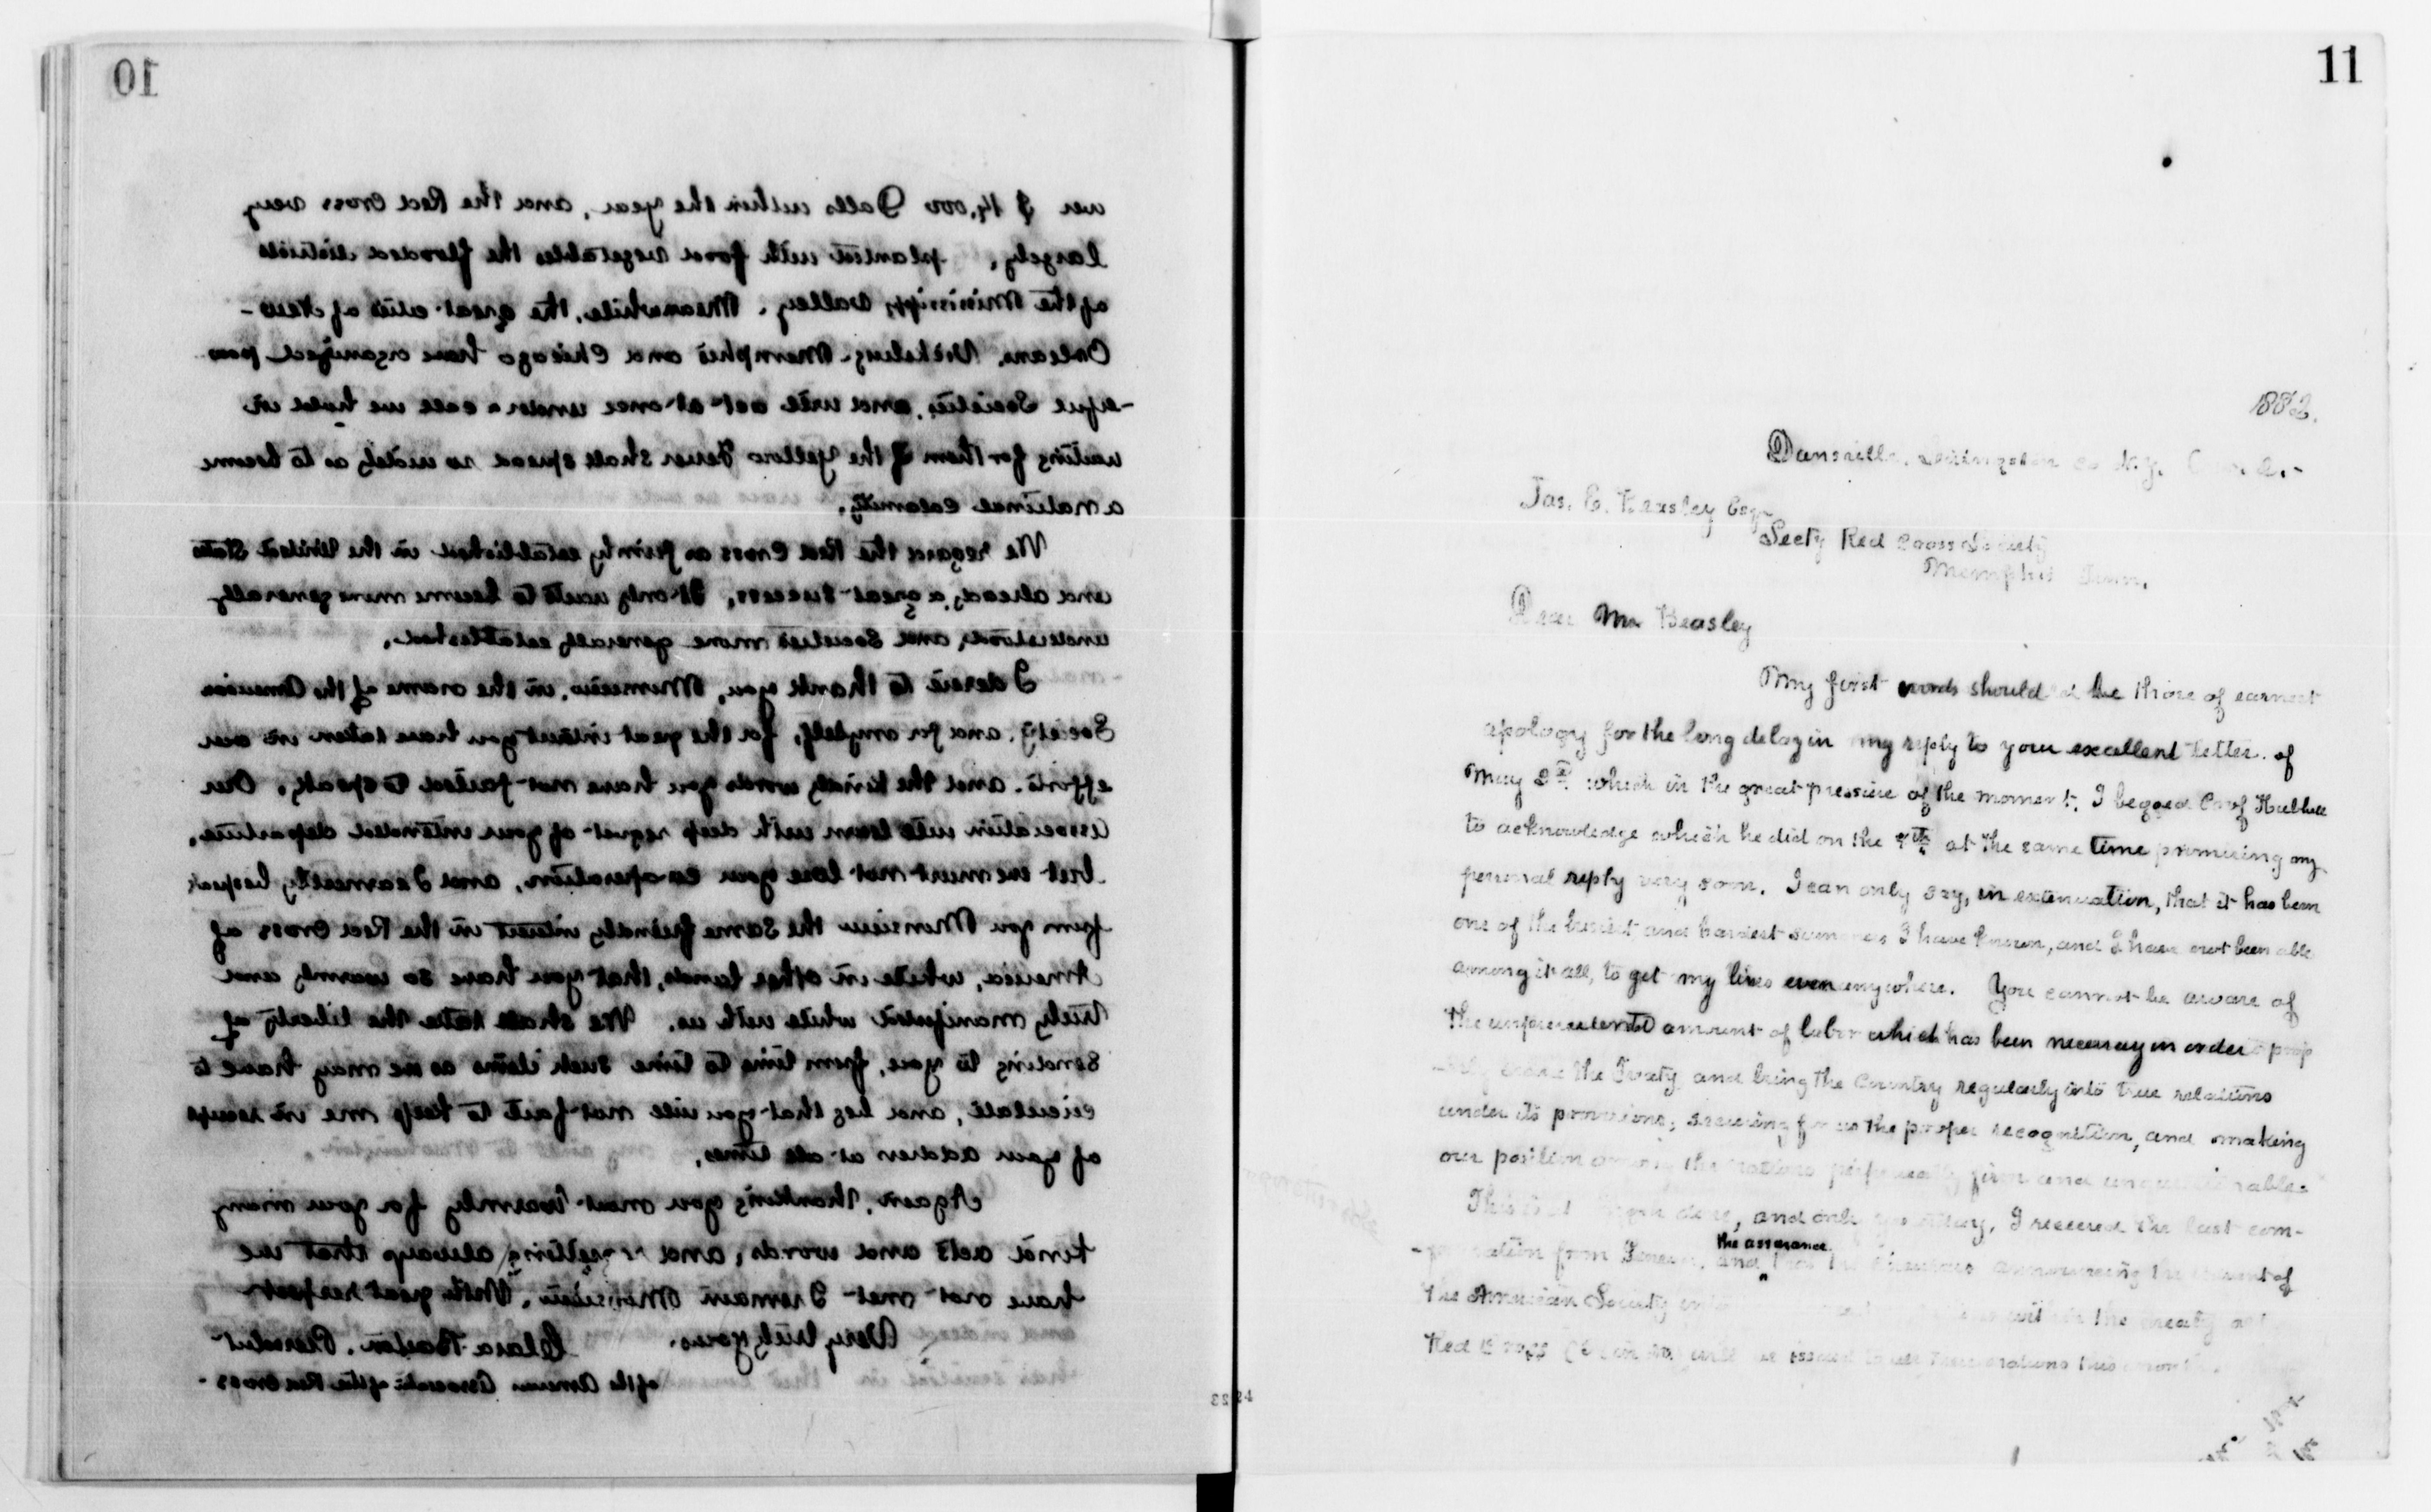 10
over $ 14,000 Dolls within the year, and the Red Cross very
largely, planted with food vegetables the flooded districts
of the Mississippi Valley. Meanwhile, the great cities of New-
Orleans, Vicksburg, Memphis and Chicago have organized pow
-erful Societies, and will act at once under a call we hold in
waiting for them if the Yellow Fever shall spread so widely as to become
a national calamity.
We regard the Red Cross as firmly established in the United States
and already a great success, It only waits to become more generally
understood, and Societies more generally established.
I desire to thank you, Monsieur, in the name of the American
Society, and for myself, for the great interest you have taken in our
efforts, and the kindly words you have not failed to speak. Our
association will learn with deep regret of your intended departure,
but we must not lose your co-operation, and, I earnestly bespeak
from you Monsieur the same friendly interest in the Red Cross of
America, while in other lands, that you have so warmly and
truly manifested while with us. We shall take the liberty of
sending to you, from time to time such items as we may have to
circulate, and beg that you will not fail to keep me in receipt
of your address at all times.
Again, thanking you most warmly for your many
kind acts and words, and regretting always that we
have not met I remain Monsieur, With great respect
Very truly yours.
Clara Barton. President
of the American Association of the Red Cross.
11
1882.
Dansville, Livingston Co N.Y.
Jas. E. Beasley Esq
Secty Red Cross Society
Memphis Tenn.
Dear Mr Beasley
My first words should be those of earnest
apology for the long delay in my reply to your excellent letter of
May 2d which in the great pressure of the moment, I begged Prof Hubbell
to acknowledge which he did on the 9th at the same time promising my
personal reply very soon. I can only say, in extenuation, that it has been
one of the busiest and hardest summers I have known, and I have not been able
among it all, to get my lines even anywhere. You cannot be aware of
the unprecedented amount of labor which has been necessary in order to prop
the Treaty and bring the country regularly into true relations
under its provisions; securing for us the proper recognition, and making
our position among the nations perfectly firm and unquestionable.
This is at done, and only yesterday, I received the last com-
from Geneva, and the assurance announcing the of
the American Society the treaty
Red Cross will be issued to all this month